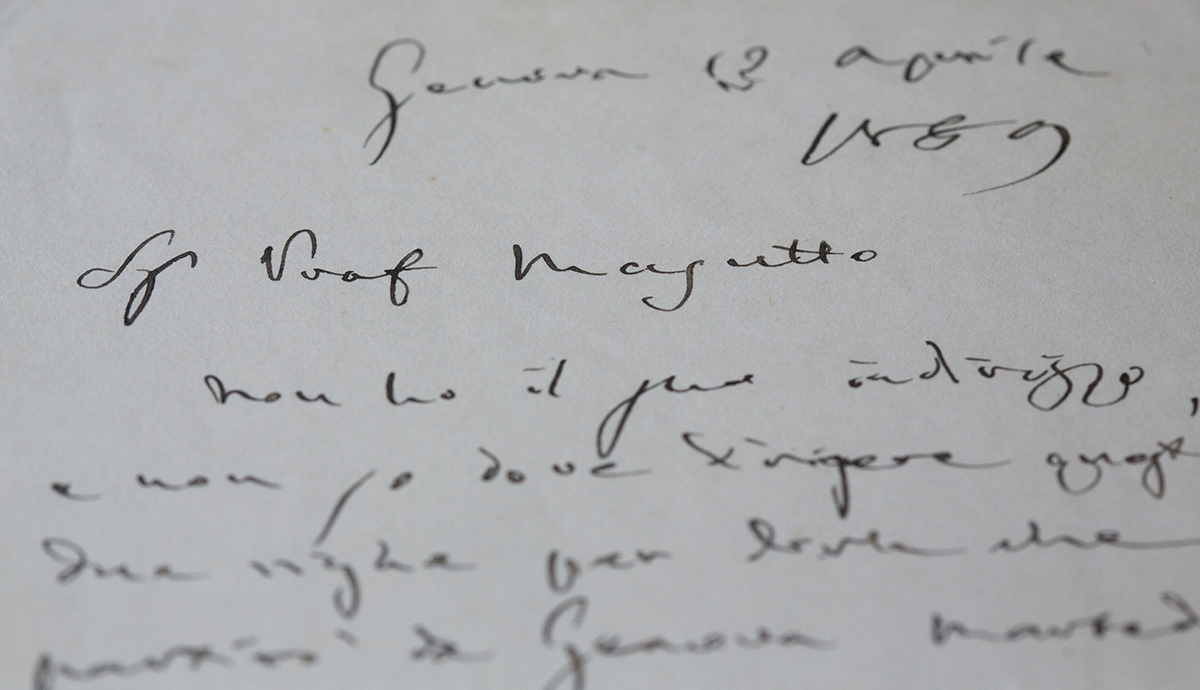 Genova 13 aprile
1889
Sg Prof Magutto
non ho il suo indirizzo,
e non so dove dirigere quest
due righe per dirle che
partirò da Genova marted